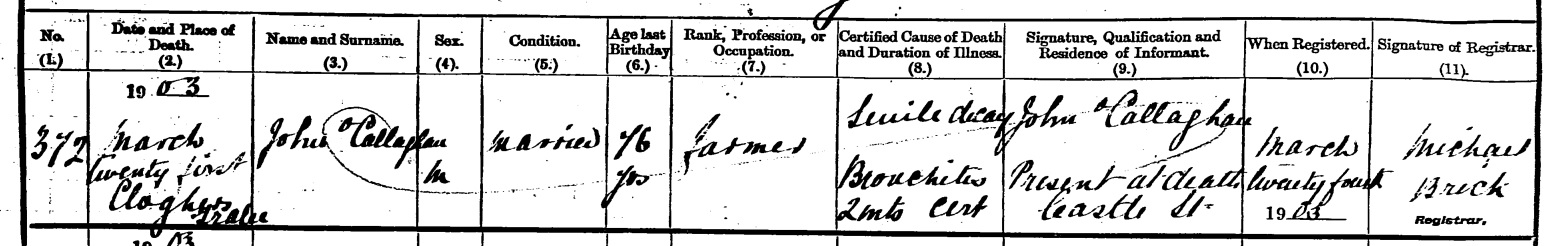 No. (1.)
Date and Place of Death. (2.)
Name and Surname. (3.)
Sex. (4).
Condition. (5.)
Age last Birthday (6.)
Rank, Profession, or Occupation. (7.)
Certified Cause of Death and Duration of Illness. (8.)
Signature, Qualification and Residence of Informant. (9.)
When Registered. (10.)
Signature of Registrar. (11).
372
1903
March
twenty first
Clogher
Tralee
John O'Callaghan
M
Married
76
yrs
farmer
Senile decay
Bronchitis
2 mts Cert
John O'Callaghan
Present at death
Castle St-
March
twenty fourth
1903
Michael
Brick
Registrar.
1903